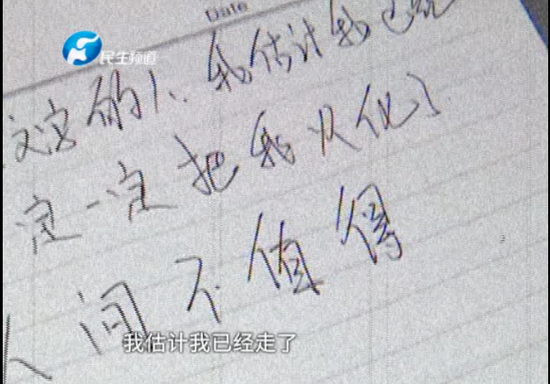 Date
民生频道
我估计我已经
一定把我火化了
人间不值得
我估计我已经走了